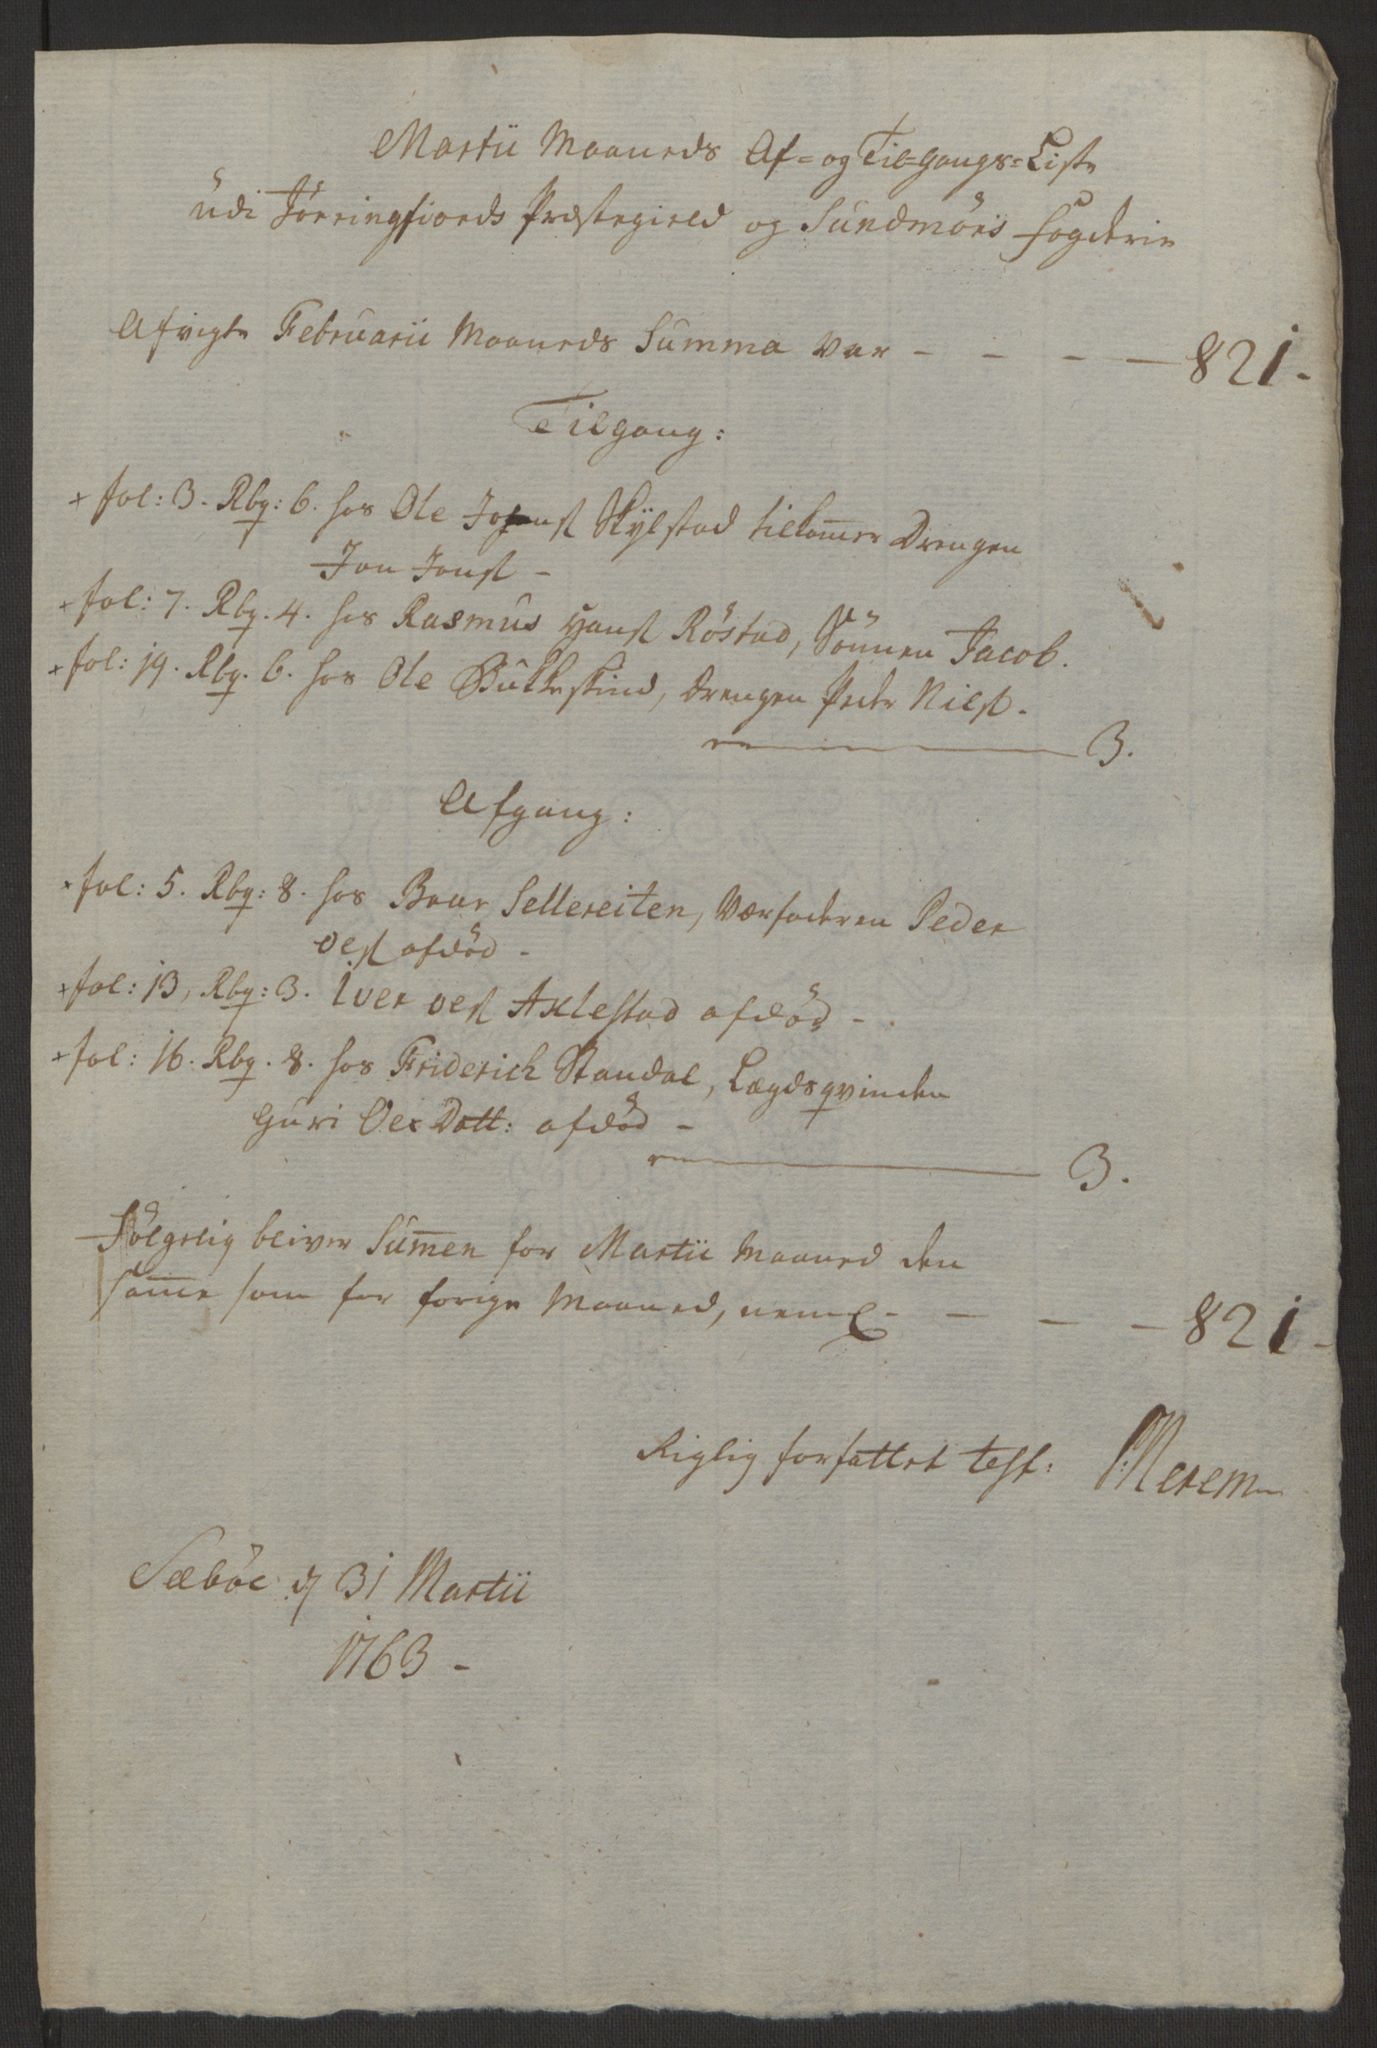 Martii Maaneds Af= og Til=Gangs=Liste
udi Jörringfiords Præstegield og Sundmörs Fogderie
Afvigte Februarii Maaneds Summa var - - - - 821.
Tilgang:
+ fol: 3. Rbq: 6. hos Ole Skylstad tilkom̄er Drengen
Jon Jons: -
+ fol: 7. Rbq. 4. hos Rasmus Hans: Röstad, Sönnen Jacob.
+ fol: 19. Rbq. 6. hos Ole Bukkeskind, drengen Peder Nils:.
3.
Afgang:
+ fol: 5. Rbq: 8. hos Brun Sellereiten, Værfaderen Peder
Oles: afdöd -
+ fol: 13, Rbq: 3. Iver Oles: Axlestad afdöd -
+ fol: 16. Rbq. 8. hos Friderich Standal, Lægdsqvinden
Guri Oles Dott: afdöd -
3.
Fölgelig bliver Sum̄en for Martii Maaned den
sam̄e som for forige Maaned, neml: - - - - 821.
Rigtig forfattet test:
Sæböe d 31 Martii
1763 -